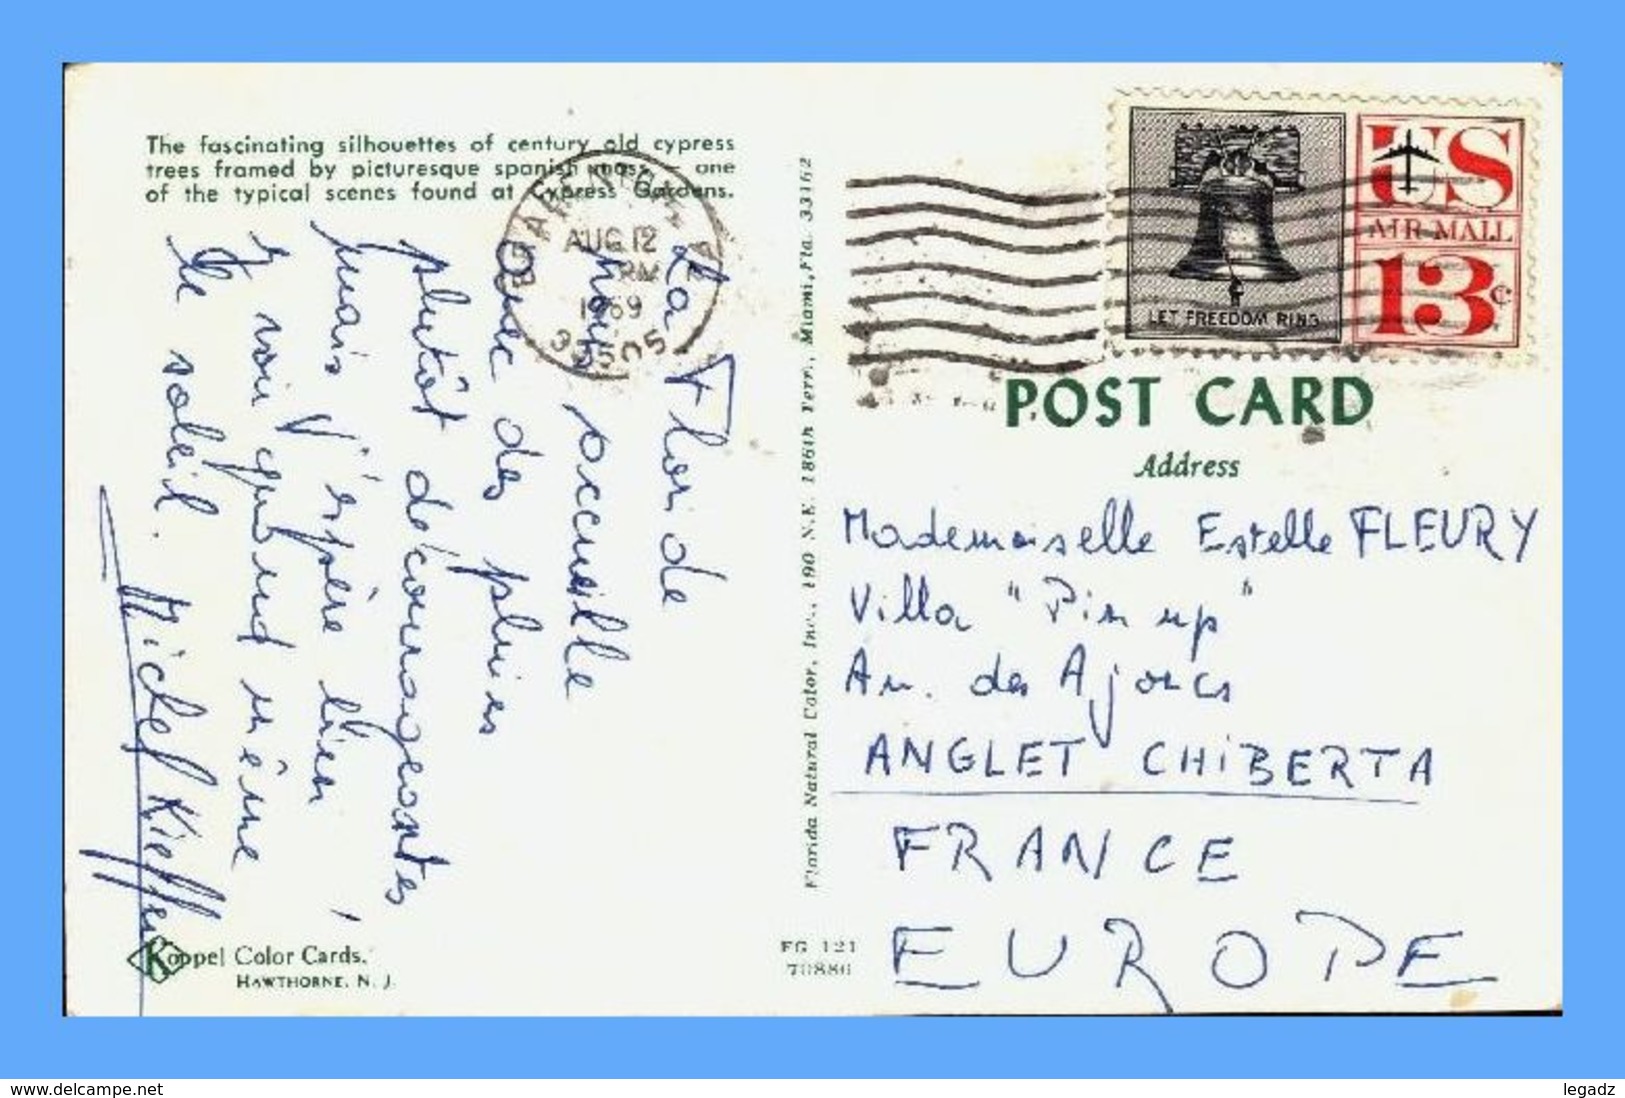 The fascinating silhouettes of century old cypress
trees framed by picturesque spanish moss, one
of the typical scenes found at Cypress Gardens.
La Floride
nous accueille
avec des pluies
plutôt décourageantes
mais j'espère bien
y voir quand même
le soleil.
Michel Kieffer
Koppel Color Cards.
HAWTHORNE, N. J.
BRADENTON, FLA
AUG 12
PM
1969
33505
Florida Natural Color, Inc., 190 N.E. 186th Terr., Miami, Fla. 33162
FG 121
70880
US
AIR MAIL
13c
LET FREEDOM RING
POST CARD
Address
Mademoiselle Estelle FLEURY
Villa "Pin up"
Av. des Ajoncs
ANGLET CHIBERTA
FRANCE
EUROPE
www.delcampe.net
legadz